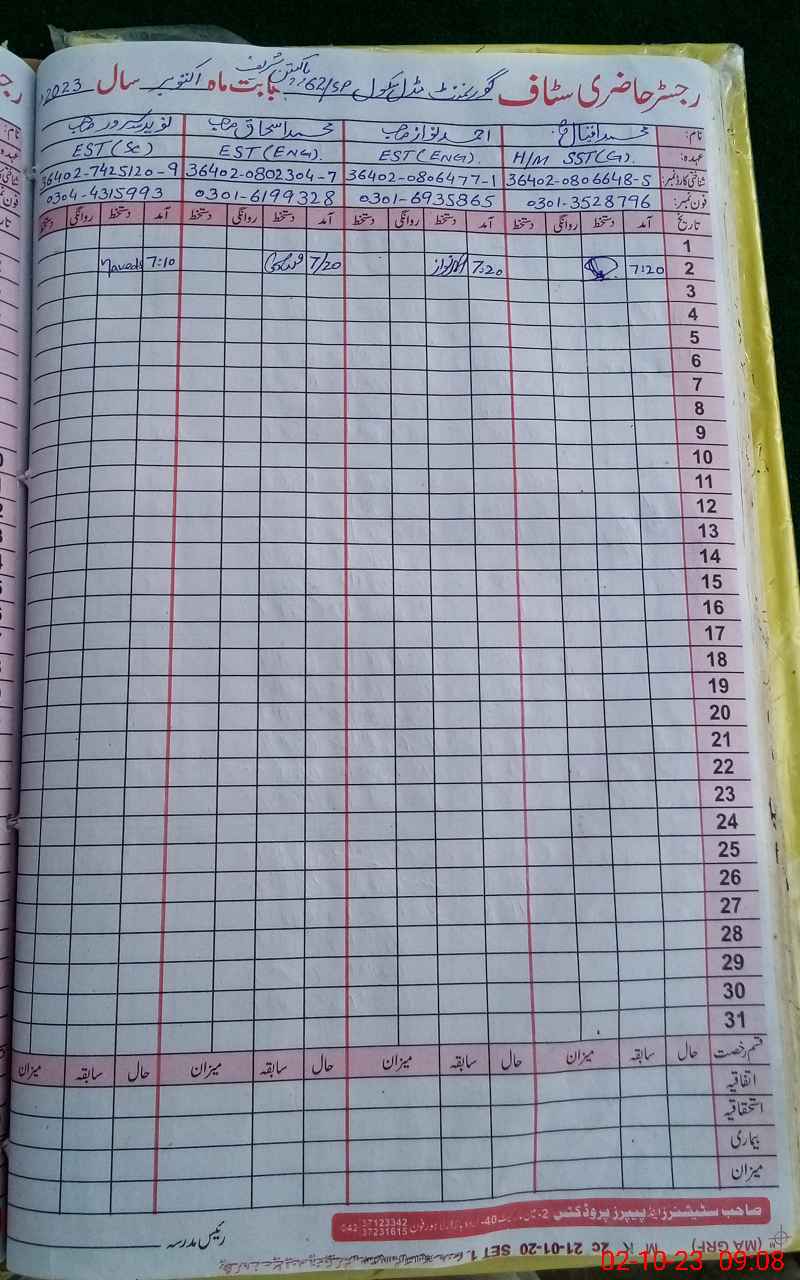 رجسٹر حاضری سٹاف گورنمنٹ مڈل سکول 62/SP پاکپتن شریف بابت ماہ اکتوبر سال 2023
نام: محمد اقبال صاحب احمد نواز صاحب محمد اسحاق صاحب نوید سرور صاحب
عہدہ: H/M SST(G). EST(ENG). EST(ENG). EST(SC)
شناختی کارڈ نمبر: 36402-0806648-5 36402-0806477-1 36402-0802304-7 36402-7425120-9
فون نمبر: 0301-3528796 0301-6935865 0301-6199328 0304-4315993
تاریخ آمد دستخط روانگی دستخط آمد دستخط روانگی دستخط آمد دستخط روانگی دستخط آمد دستخط روانگی دستخط
1
2 7:20 7:20 7/20 7:10 Naveed
3
4
5
6
7
8
9
10
11
12
13
14
15
16
17
18
19
20
21
22
23
24
25
26
27
28
29
30
31
قسم رخصت حال سابقہ میزان حال سابقہ میزان حال سابقہ میزان حال سابقہ میزان
اتفاقیہ
استحقاقیہ
بیماری
میزان
صاحب سٹیشنرز اینڈ پیپرز پروڈکٹس 042-37123342 37231615
رئیس مدرسہ
(MA GRF) M K 2c 21-01-20 SET 1.
02-10-23 09:08